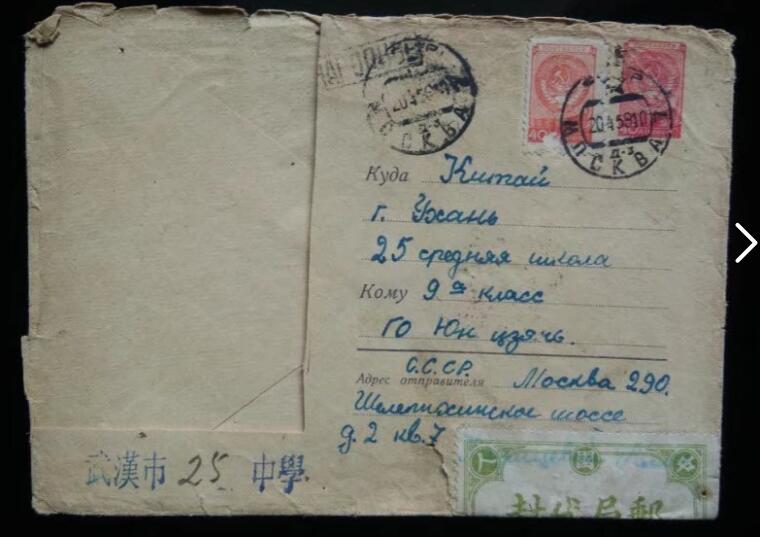 МОСКВА
20 4 58
Д-3
МОСКВА
20 4 58 10
Д-3
40
40
Куда Китай
г. Ухань
25 средняя школа
Кому 9 а класс
Го Юн цзячь.
С.С.С.Р.
Адрес отправителя Москва 290.
Шелепихинское шоссе
д. 2 кв. 7
武漢市 25 中學
郵局代封